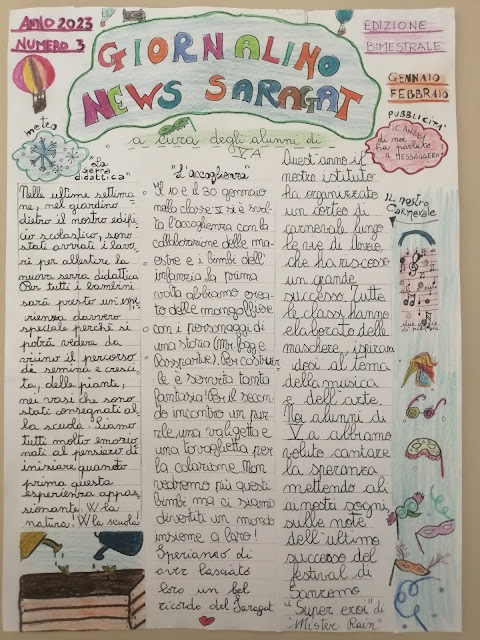 ANNO 2023
NUMERO 3
GIORNALINO
NEWS SARAGAT
EDIZIONE
BIMESTRALE
GENNAIO
FEBBRAIO
PUBBLICITA'
meteo
a cura degli alunni di
VA
"La
serra
didattica"
Nelle ultime settima
ne, nel giardino
dietro il nostro edifi
cio scolastico, sono
stati avviati i lavo
ri per allestire la
nuova serra didattica
Per tutti i bambini
sarà presto un'espe
rienza davvero
speciale perché si
potrà vedere da
vicino il percorso
di semina e cresci
ta, delle piante,
nei vasi che sono
stati consegnati al
la scuola. Siamo
tutti molto emozio
nati al pensiero di
iniziare quanto
prima questa
esperienza appas
sionante. W la
natura! W la scuola!
"L'accoglienza"
Il 10 e il 30 gennaio
nella classe V si è svol
ta l'accoglienza con la
collaborazione delle ma
estre e i bimbi dell'
infanzia la prima
volta abbiamo crea
to delle mongolfiere
con i personaggi di
una storia (Mr. Fogg e
Passpartue). Per costruir
le è servita tanta
fantasia! Per il secon
do incontro un pur
zle, una valigetta e
una tovaglietta per
la colazione. Non
vedremo più questi
bimbi ma ci siamo
divertiti un mondo
insieme a loro!
Speriamo di
aver lasciato
loro un bel
ricordo del Saragat
Quest'anno il
nostro istituto
ha organizzato
un corteo di
carnevale lungo
le vie di Anzio,
che ha riscosso
un grande
successo. Tutte
le classi hanno
elaborato delle
maschere, ispiran
dosi al tema
della musica
e dell'arte.
Noi alunni di
V a abbiamo
voluto cantare
la speranza
mettendo ali
ai nostri sogni,
sulle note
dell'ultimo
successo del
festival di
Sanremo
"Super eroi" di
"Mister Rain"
SC. ANGEL
di noi
ha parlato
IL MESSAGGERO
IL nostro
Carnevale